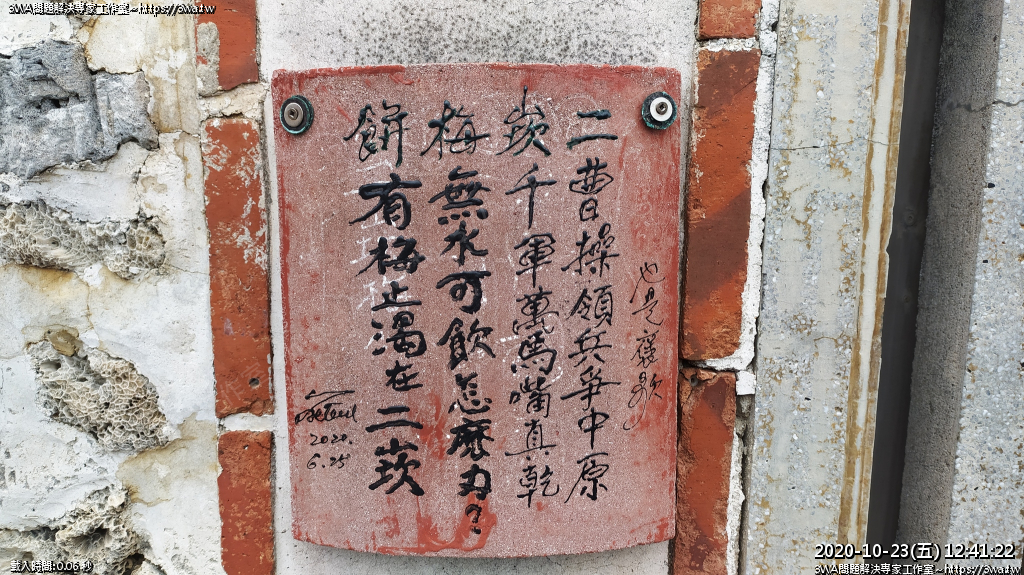 3WA問題解決專家工作室~https://3wa.tw
也是褒歌
二曹操領兵爭中原
崁千軍萬馬嘴真乾
梅無水可飲怎麼办?
餅有梅止渴在二崁
2020.
6.25
2020-10-23(五) 12:41:22
載入時間: 0.06 秒
3WA問題解決專家工作室~https://3wa.tw